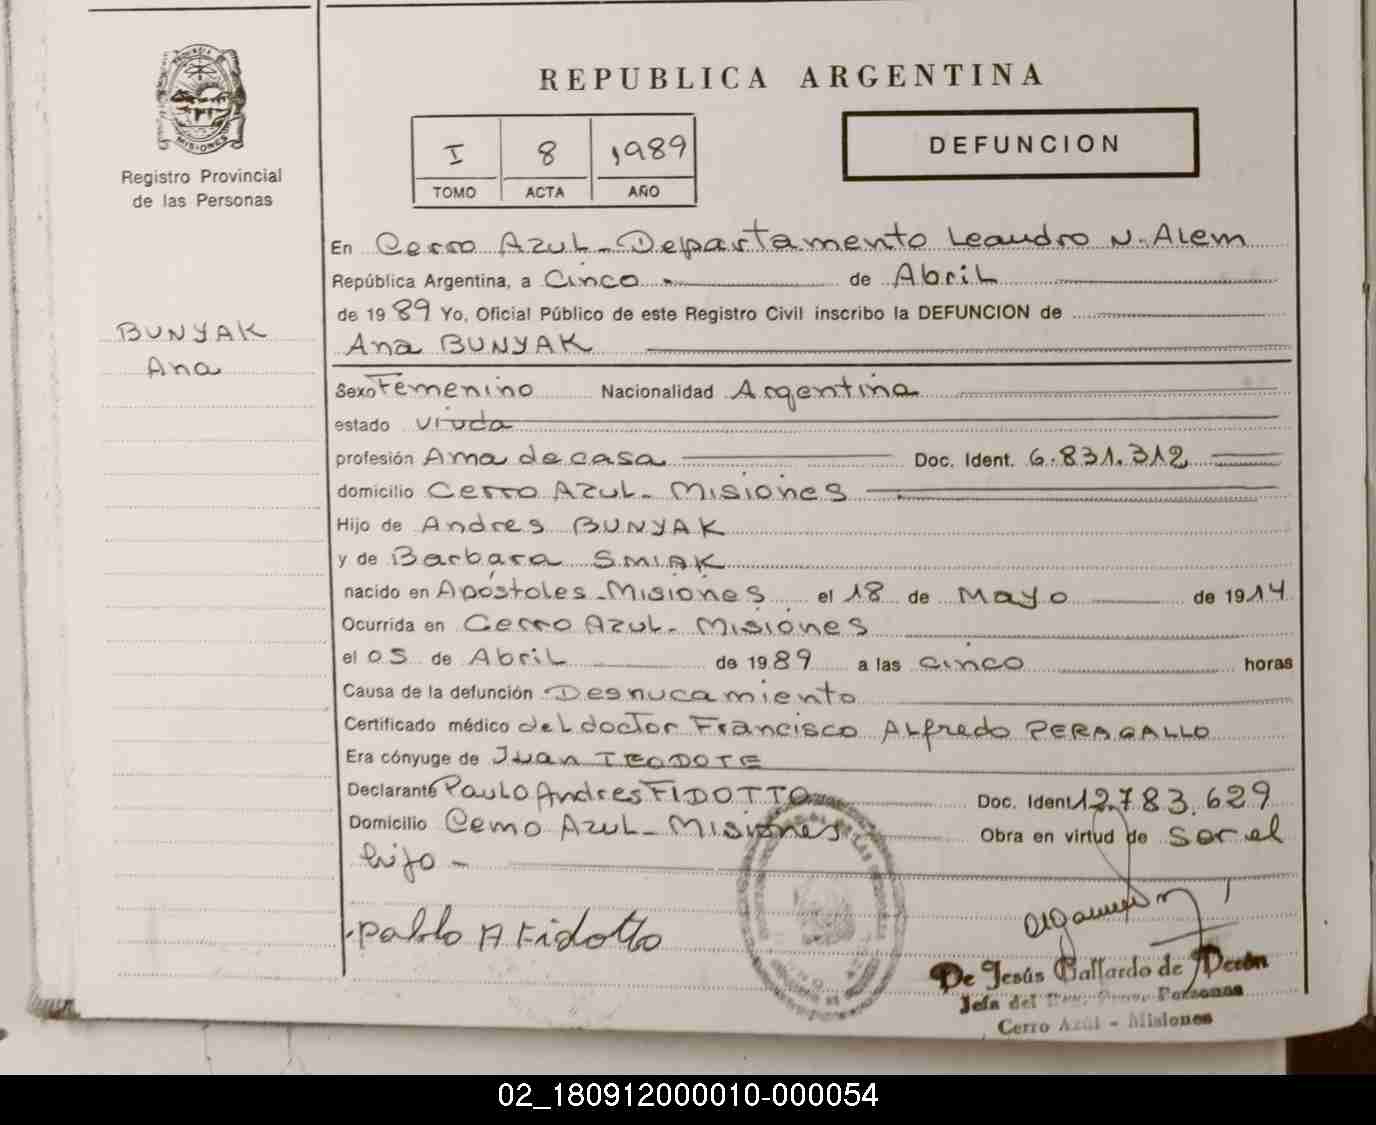 PROVINCIA DE
MISIONES
Registro Provincial
de las Personas
BUNYAK
Ana
REPUBLICA ARGENTINA
I 8 1989
TOMO ACTA AÑO
DEFUNCION
En Cerro Azul - Departamento Leandro N. Alem
República Argentina, a Cinco de Abril
de 1989 Yo, Oficial Público de este Registro Civil inscribo la DEFUNCION de
Ana BUNYAK
Sexo Femenino Nacionalidad Argentina
estado viuda
profesión Ama de casa Doc. Ident. 6.831.312
domicilio Cerro Azul - Misiones
Hijo de Andres BUNYAK
y de Barbara SMIAK
nacido en Apóstoles - Misiones el 18 de Mayo de 1914
Ocurrida en Cerro Azul - Misiones
el 05 de Abril de 1989 a las cinco horas
Causa de la defunción Desnucamiento
Certificado médico del doctor Francisco Alfredo PERAGALLO
Era cónyuge de Juan TEODOTE
Declarante Paulo Andres FIDOTTO Doc. Ident 12.783.629
Domicilio Cerro Azul - Misiones Obra en virtud de ser el
hijo -
Pablo A Fidotto
De Jesús Gallardo de
Jefa del Personas
Cerro Azul - Misiones
02_180912000010-000054